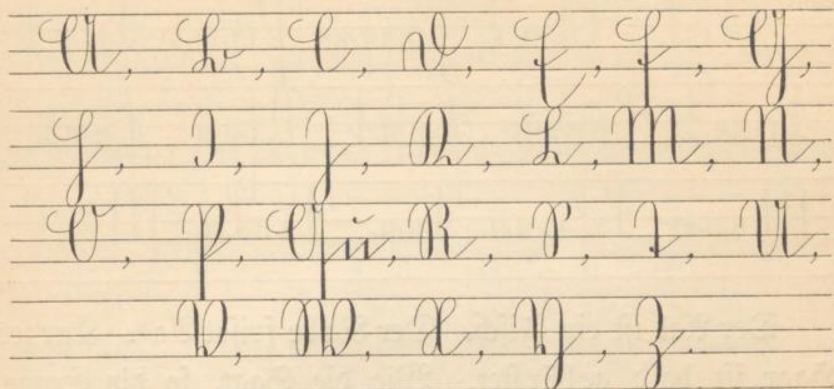 A, B, C, D, E, F, G,
H, I, J, K, L, M, N,
O, P, Qu, R, S, T, U,
V, W, X, Y, Z.